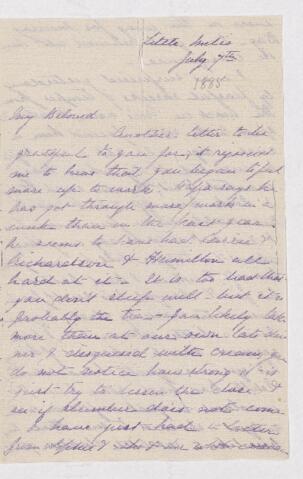 Little Metis
July 7th
1885
My Beloved
Another letter to be
grateful to you for, it rejoices
me to hear that you begin to feel
more up to work. says he
has got through more work in a
week than in the last year
he seems to have had
Richardson & Hamilton all
hard at it - It is too bad that
you don't sleep well - but it is
probably the tea - You likely take
more than at our own late din
ner & disguised with cream you
do not notice how strong it is
just try to lessen the dose &
see if slumber does not come
I have just had a letter
from